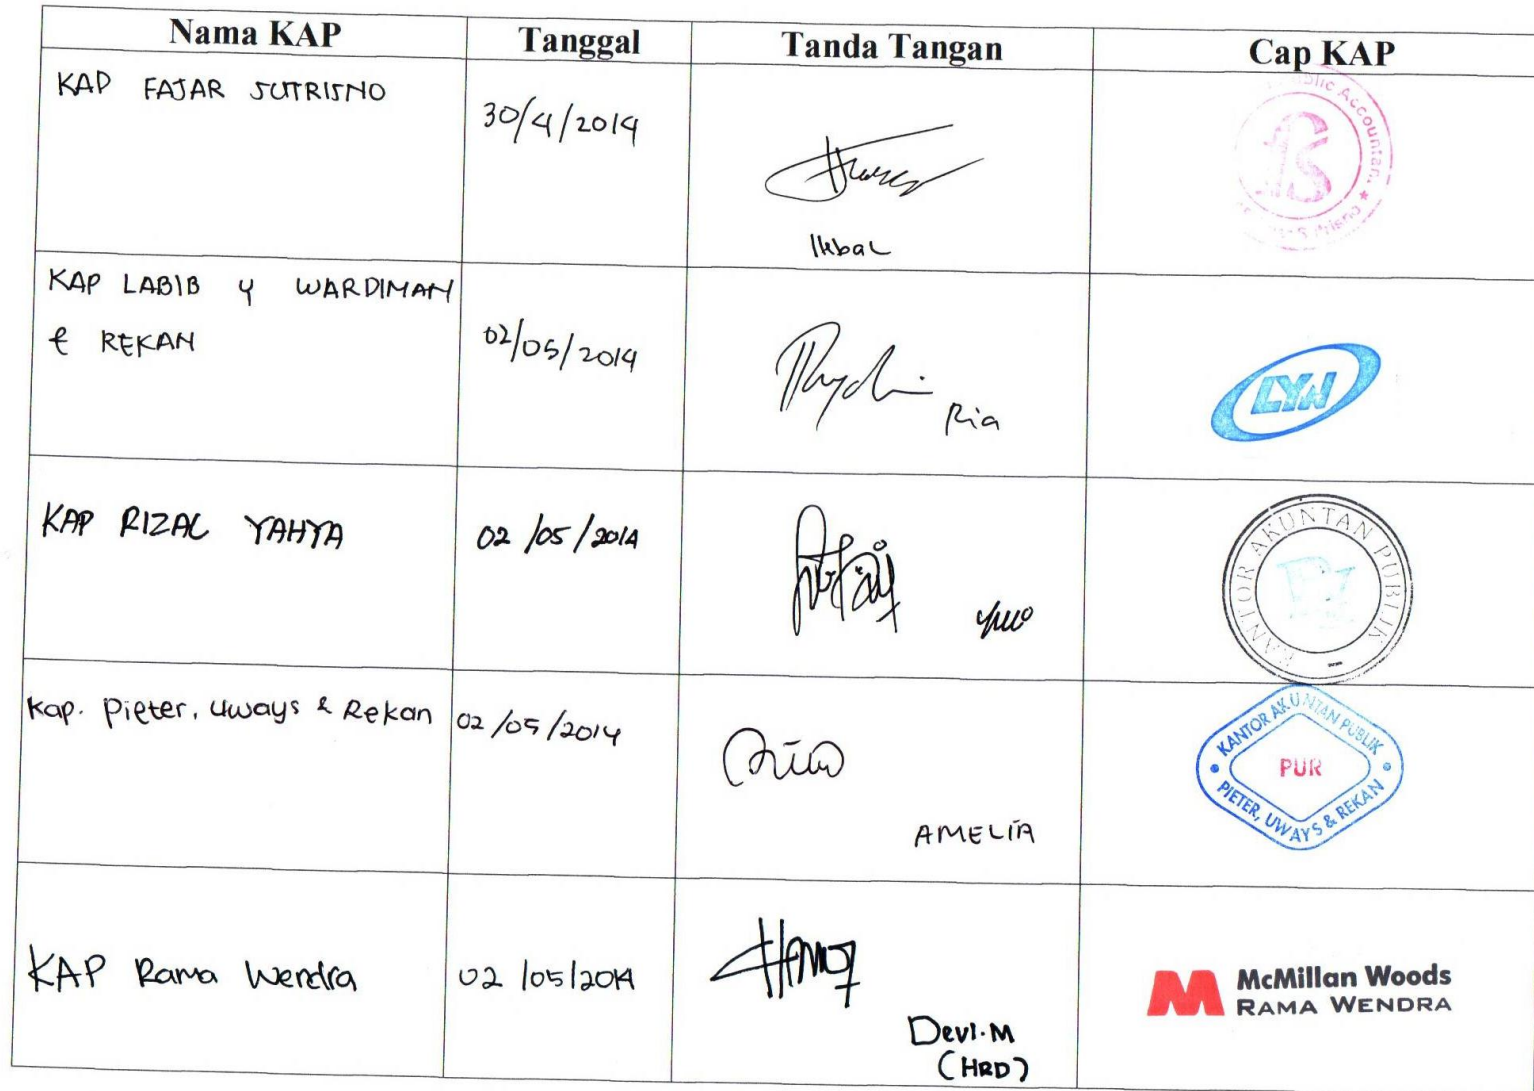 Nama KAP Tanggal Tanda Tangan Cap KAP
KAP FAJAR SUTRISNO 30/4/2014
Public Accountant
Ikbal
KAP LABIB Y WARDIMAN
& REKAN 02/05/2014
Ria
LYW
KAP RIZAL YAHYA 02/05/2014
KANTOR AKUNTAN PUBLIK
Kap. Pieter, Uways & Rekan 02/05/2014
AMELIA
KANTOR AKUNTAN PUBLIK
PUR
PIETER, UWAYS & REKAN
KAP Rama Wendra 02/05/2014
Devi.M
(HRD)
McMillan Woods
RAMA WENDRA